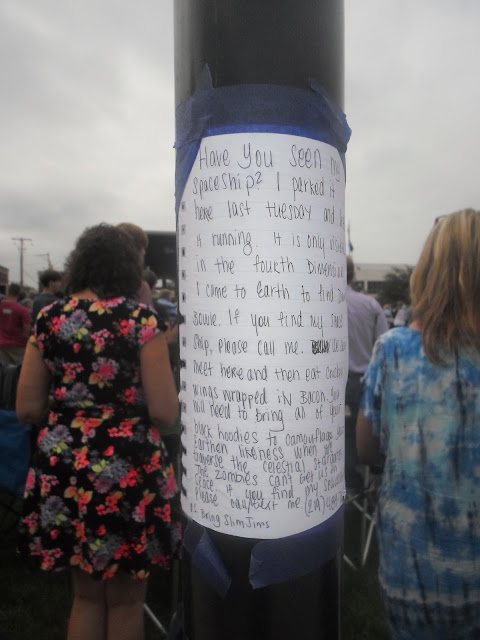 Have you seen my
spaceship? I parked it
here last Tuesday and
it running. It is only
in the fourth Dimension
I came to earth to find
Bowie. If you find my
ship, please call me.
meet here and then eat chicken
wings wrapped in Bacon. You
will need to bring all of your
black hoodies to camouflage
earthen likeness when we
traverse the celestial
The zombies can't get us in
space. If you find my
please call/text me
PS Bring Slim Jims